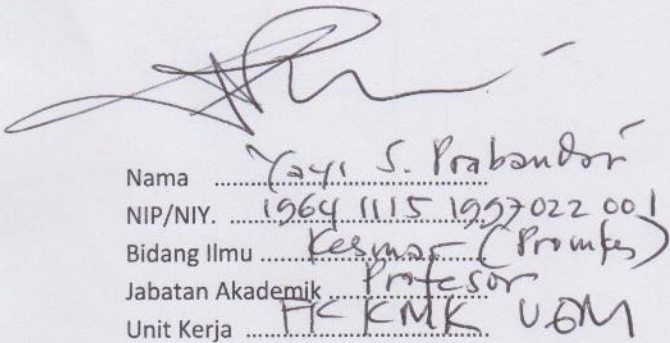 Nama Yayi S. Prabandari
NIP/NIY. 1964 1115 1997022 001
Bidang Ilmu Kesmas (Promkes)
Jabatan Akademik Profesor
Unit Kerja FK-KMK UGM